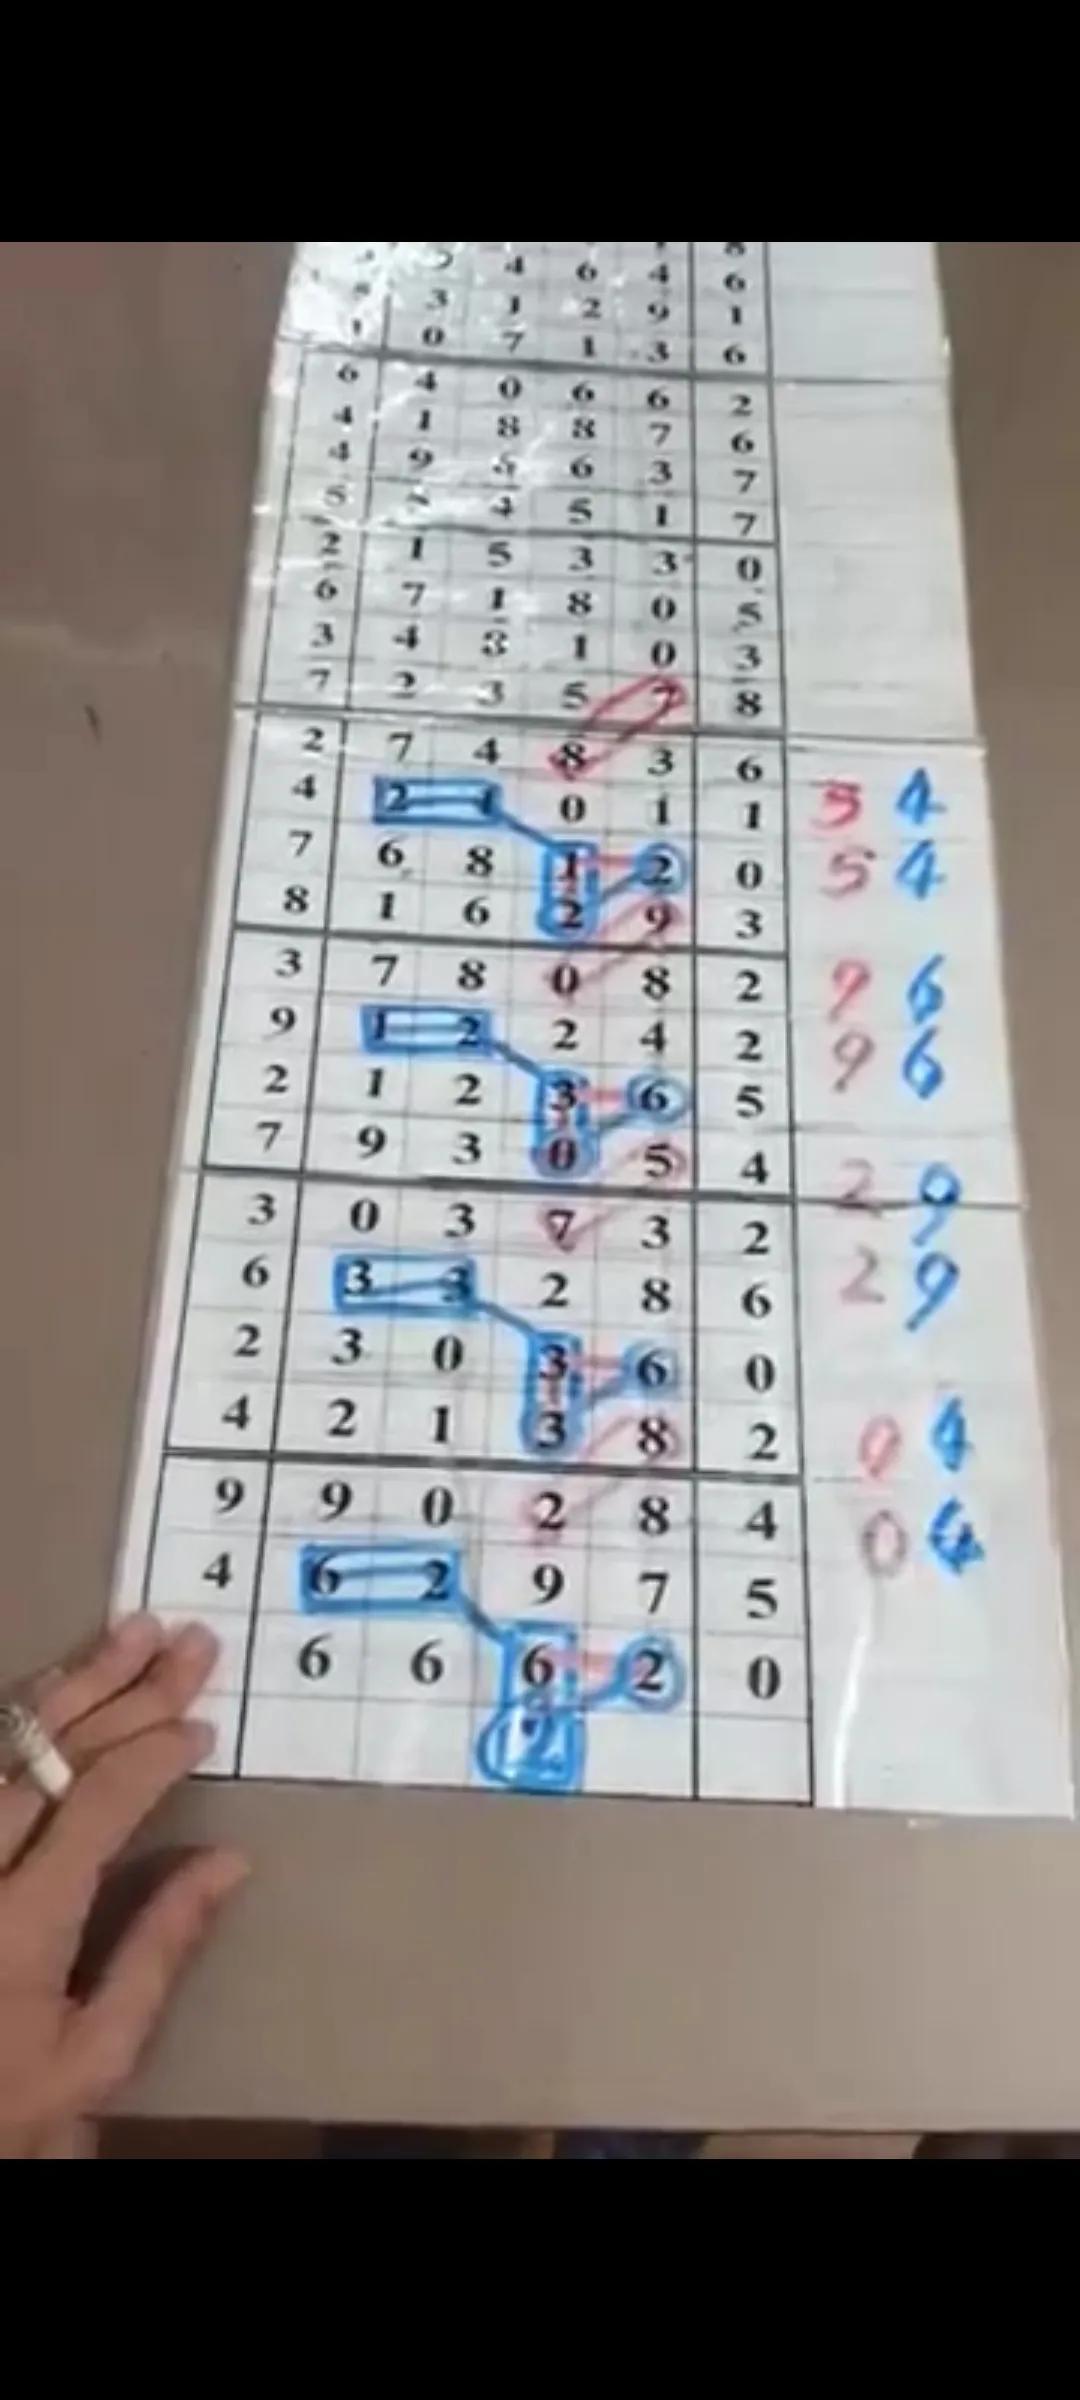 4 6 4 6
3 1 2 9 1
1 0 7 1 3 6
6 4 0 6 6 2
4 1 8 8 7 6
4 9 6 3 7
5 4 5 1 7
2 1 5 3 3 0
6 7 1 8 0 5
3 4 3 1 0 3
7 2 3 5 7 8
2 7 4 8 3 6
4 2 1 0 1 1 5 4
7 6 8 1 2 0 5 4
8 1 6 2 9 3
3 7 8 0 8 2 9 6
9 1 2 2 4 2 9 6
2 1 2 3 6 5
7 9 3 0 5 4 2 9
3 0 3 7 3 2
6 3 3 2 8 6 2 9
2 3 0 3 6 0
4 2 1 3 8 2 0 4
9 9 0 2 8 4 0 4
4 6 2 9 7 5
6 6 6 2 0
2